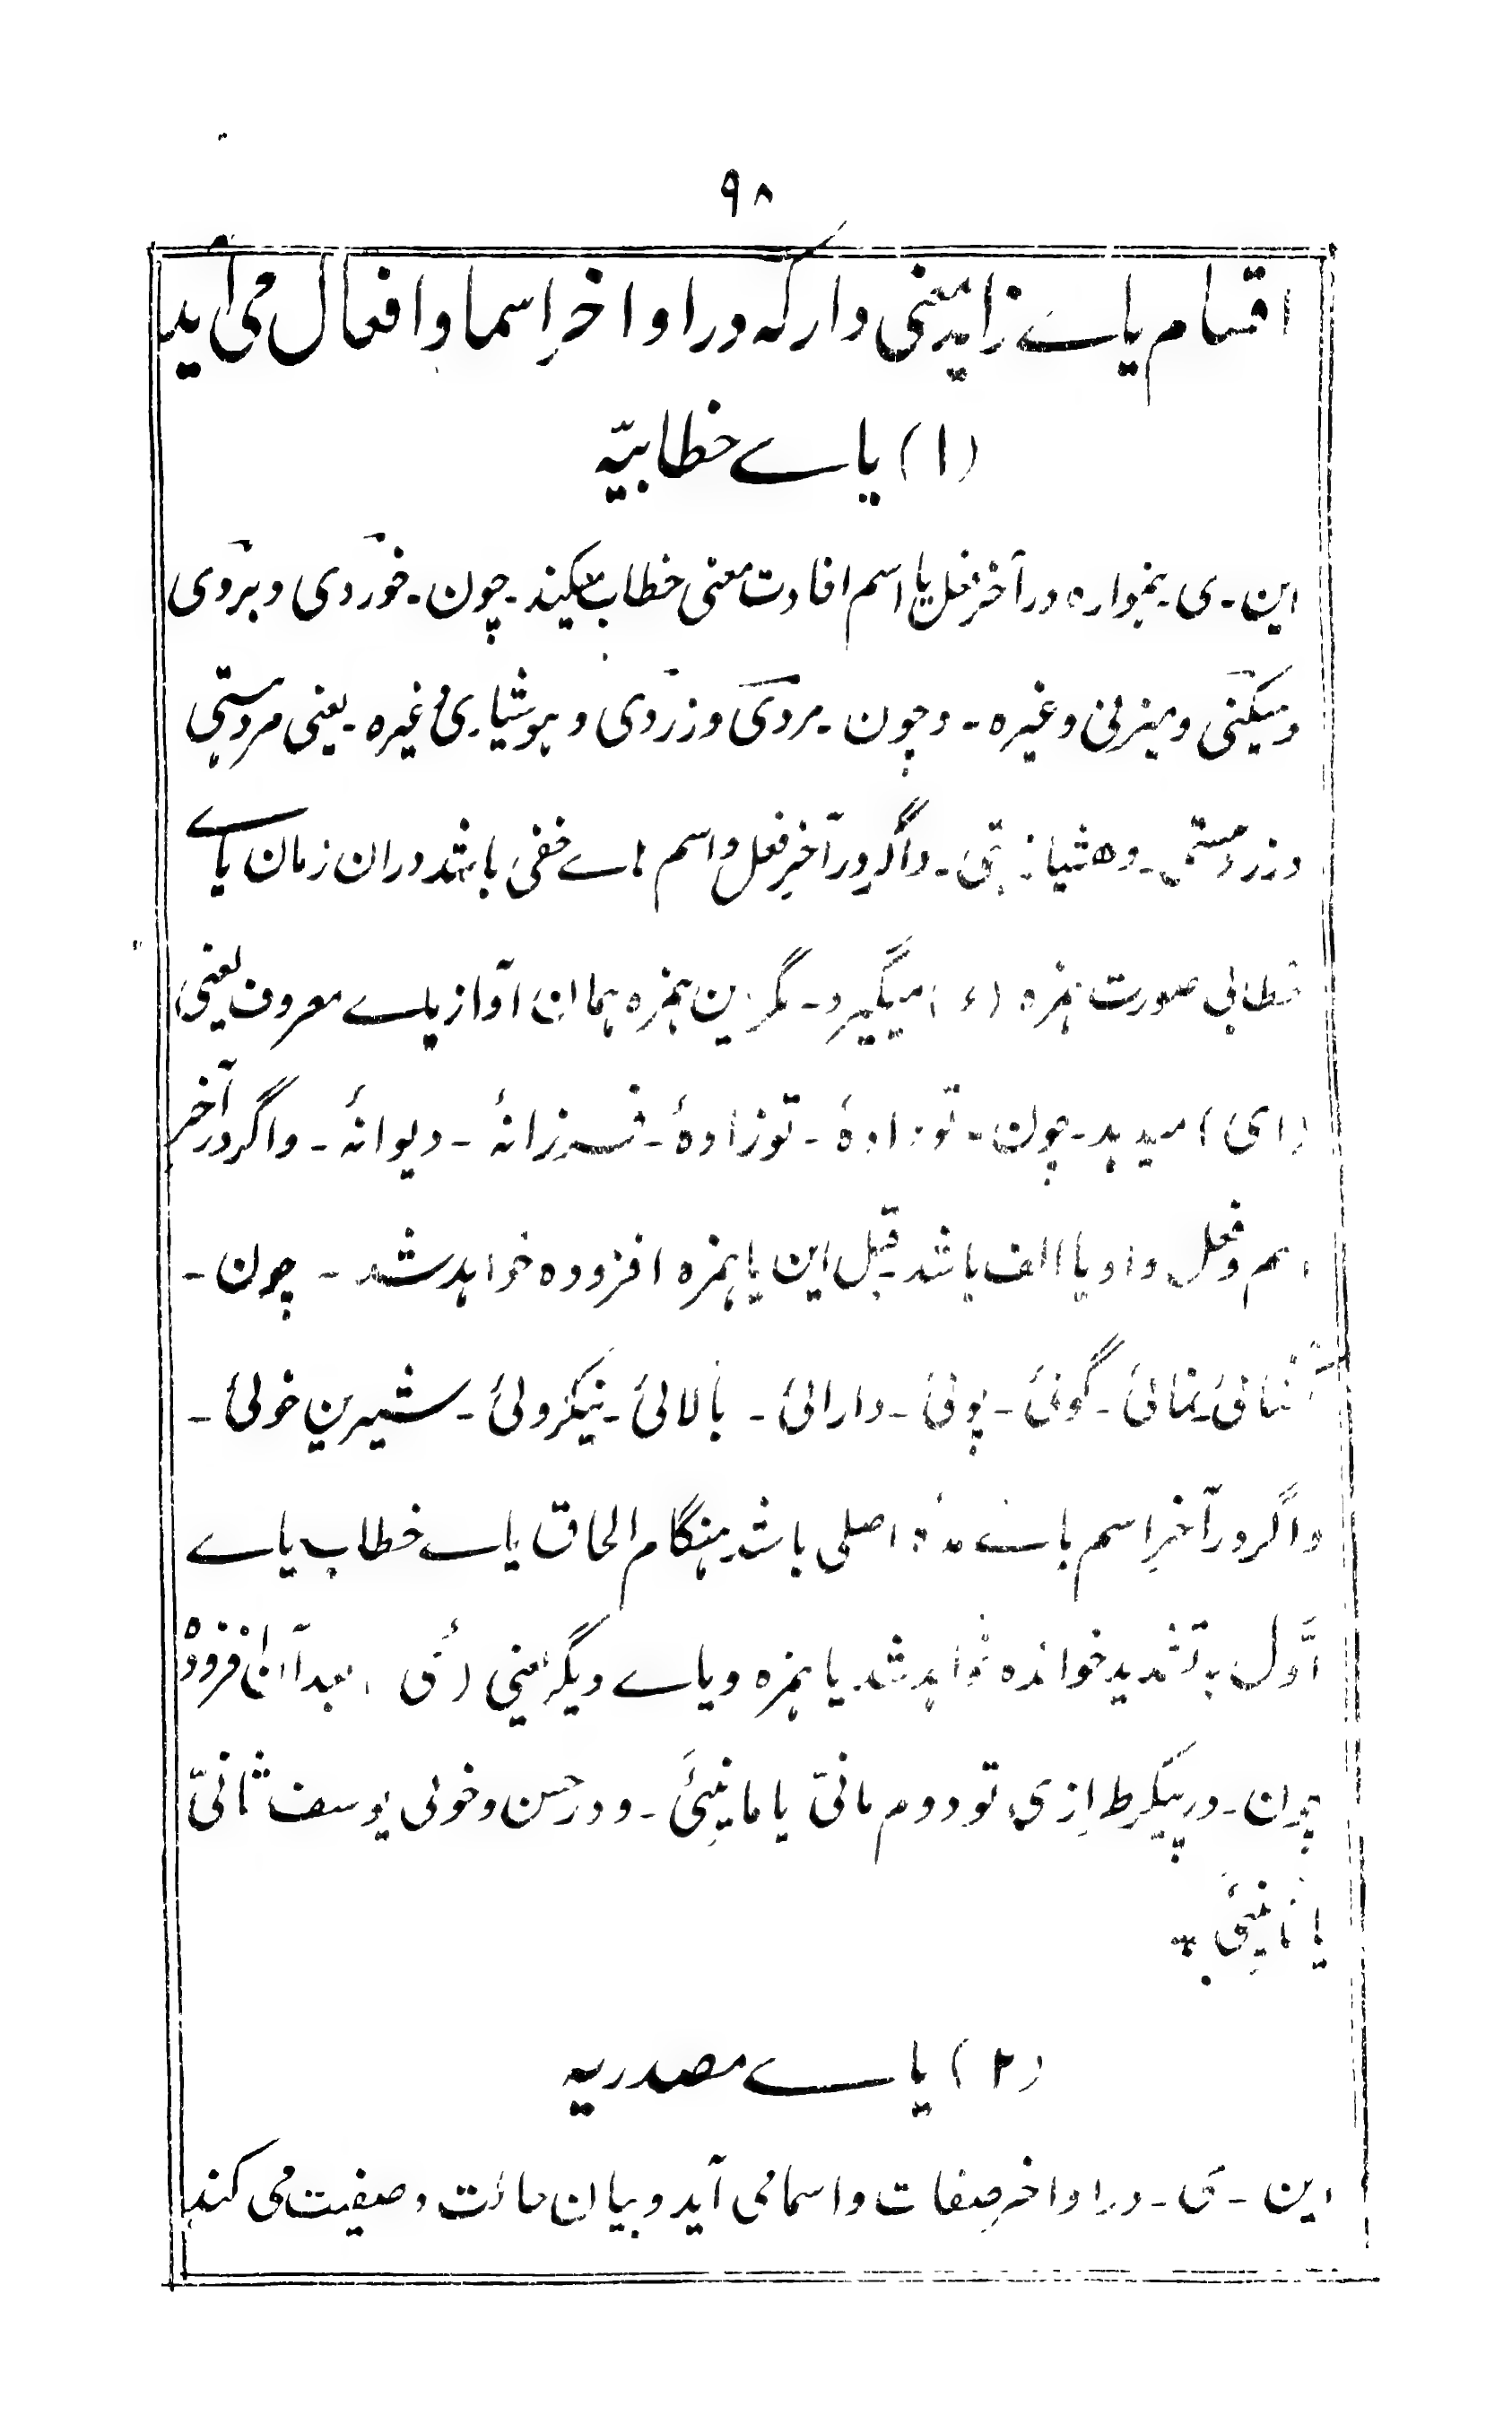 ۹۸
اقسام یاے زاید معنی دار که در اواخرِ اسما و افعال می آید
(۱) یاے خطابیّه
این ـ ی ـ همواره در آخر فعل یا اسم افادت معنی خطاب میکند ـ چون ـ خوردی و بردی
و میکنی و میزنی و غیره ـ و چون ـ مردی و زردی و هوشیاری و غیره ـ یعنی مرد هستی
و زرد هستی ـ و هشیار هستی ـ و اگر در آخرِ فعل و اسم هاے خفی باشد دران زمان یاے
خطابی صورت همزه (ء) میگیرد ـ مگر این همزه همان آواز یاے معروف یعنی
(ای) میدهد ـ چون ـ تو دادهٔ ـ تو زادهٔ ـ فرزانهٔ ـ دیوانهٔ ـ و اگر در آخر
اسم و فعل واو یا الف باشد ـ قبل این یا همزه افزوده خواهد شد ـ چون ـ
نمائی ـ گوئی ـ پوئی ـ دارائی ـ بالائی ـ نیکروئی ـ شیرین خوئی ـ
و اگر در آخرِ اسم یاے اصلی باشد هنگام الحاق یاے خطاب یاے
اوّل به تشدید خوانده خواهد شد یا همزه و یاے دیگر یعنی (ئی) بعد آن افزوده
چون ـ در پیکر طرازی تو دوم مانیّ یا مانیئی ـ و در حسن و خوبی یوسف ثانیّ
یا ثانیئی ـ
(۲) یاے مصدریه
این ـ ی ـ در اواخرِ صفات و اسما می آید و بیان حالت و صفیت می کند